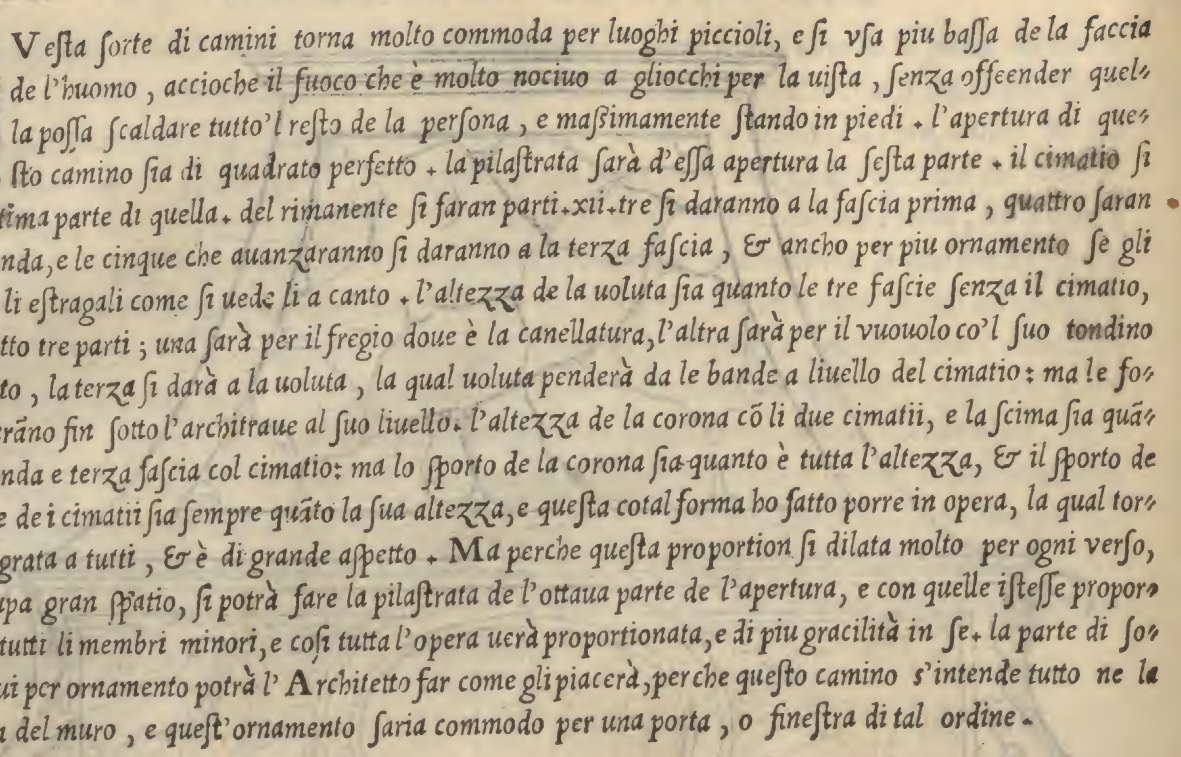 Veſta ſorte di camini torna molto commoda per luoghi piccioli, e ſi vſa piu baſſa de la faccia
de l'huomo, accioche il fuoco che è molto nociuo a gliocchi per la uiſta, ſenza offeender quel-
la poſſa ſcaldare tutto'l reſto de la perſona, e maſſimamente ſtando in piedi. l'apertura di que-
ſto camino ſia di quadrato perfetto. la pilaſtrata ſarà d'eſſa apertura la ſeſta parte. il cimatio ſi
tima parte di quella. del rimanente ſi faran parti.xii.tre ſi daranno a la faſcia prima, quattro ſaran
nda, e le cinque che auanzaranno ſi daranno a la terza faſcia, & ancho per piu ornamento ſe gli
li eſtragali come ſi uede li a canto. l'altezza de la uoluta ſia quanto le tre faſcie ſenza il cimatio,
tto tre parti; una ſarà per il fregio doue è la canellatura, l'altra ſarà per il vuouolo co'l ſuo tondino
to, la terza ſi darà a la uoluta, la qual uoluta penderà da le bande a liuello del cimatio: ma le fo-
rāno fin ſotto l'architraue al ſuo liuello. l'altezza de la corona cō li due cimatii, e la ſcima ſia quā-
nda e terza faſcia col cimatio: ma lo ſporto de la corona ſia quanto è tutta l'altezza, & il ſporto de
e de i cimatii ſia ſempre quāto la ſua altezza, e queſta cotal forma ho fatto porre in opera, la qual tor-
grata a tutti, & è di grande aſpetto. Ma perche queſta proportion ſi dilata molto per ogni verſo,
upa gran ſpatio, ſi potrà fare la pilaſtrata de l'ottaua parte de l'apertura, e con quelle iſteſſe propor-
tutti li membri minori, e coſi tutta l'opera uerà proportionata, e di piu gracilità in ſe. la parte di ſo-
ui per ornamento potrà l'Architetto far come gli piacerà, perche queſto camino s'intende tutto ne la
a del muro, e queſt'ornamento ſaria commodo per una porta, o fineſtra di tal ordine.